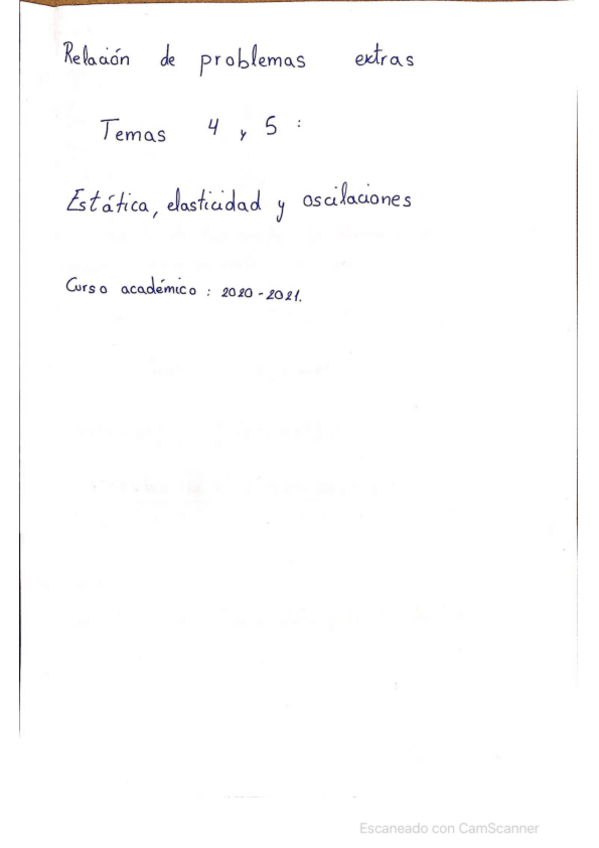 Relación de problemas extras
Temas 4 y 5 :
Estática, elasticidad y oscilaciones
Curso académico : 2020-2021.
Escaneado con CamScanner